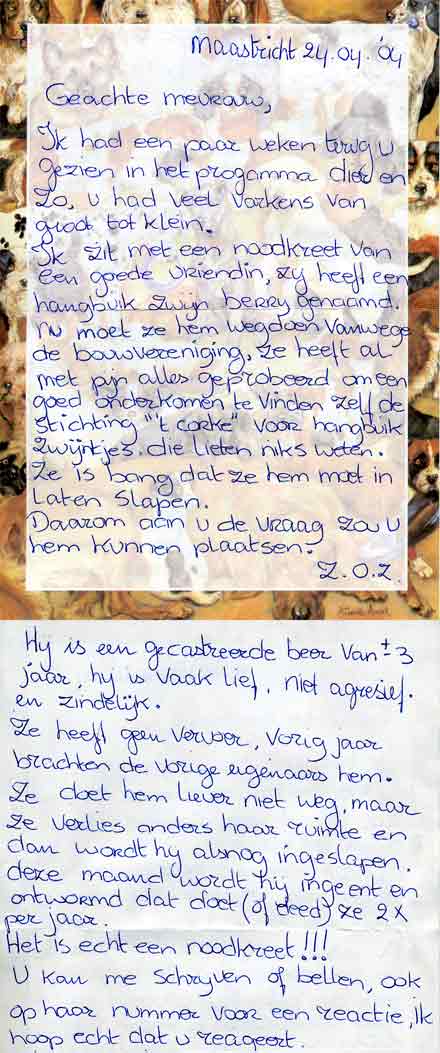 Maastricht 24.04.'04
Geachte mevrouw,
Ik had een paar weken terug u
gezien in het progamma dier en
zo, u had veel varkens van
groot tot klein.
Ik zit met een noodkreet van
een goede vriendin, zy heeft een
hangbuik zwijn berry genaamd.
nu moet ze hem wegdoen vanwege
de bouwvereniging, ze heeft al
met pijn alles geprobeerd om een
goed onderkomen te vinden zelf de
stichting "'t corke" voor hangbuik
zwijntjes. die lieten niks weten.
Ze is bang dat ze hem moet in
laten slapen.
Daarom aan u de vraag zou u
hem kunnen plaatsen.
Z.O.Z.
Hy is een gecastreerde beer van ± 3
jaar, hy is vaak lief, niet agresief.
en zindelijk.
Ze heeft geen vervoer, vorig jaar
brachten de vorige eigenaars hem.
Ze doet hem liever niet weg, maar
ze verlies anders haar ruimte en
dan wordt hy alsnog ingeslapen.
deze maand wordt hij ingeent en
ontwormd dat doet (of deed) ze 2x
per jaar.
Het is echt een noodkreet!!!
U kan me schryven of bellen, ook
op haar nummer voor een reactie, ik
hoop echt dat u reageert.